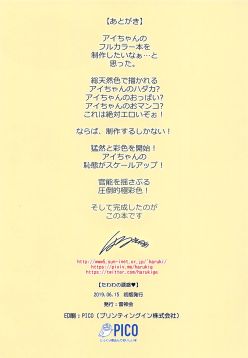 【あとがき】
アイちゃんの
フルカラー本を
制作したいなぁ…と
思った。
総天然色で描かれる
アイちゃんのハダカ?
アイちゃんのおっぱい?
アイちゃんのおマンコ?
これは絶対エロいぞぉ!
ならば、制作するしかない!
猛然と彩色を開始!
アイちゃんの
恥態がスケールアップ!
官能を揺さぶる
圧倒的極彩色!
そして完成したのが
この本です
https://pixiv.me/harukig
https://twitter.com/harukigs
【たわわの誘惑♥】
2019.06.15 初版発行
印刷:PICO(プリンティングイン株式会社)
PICO